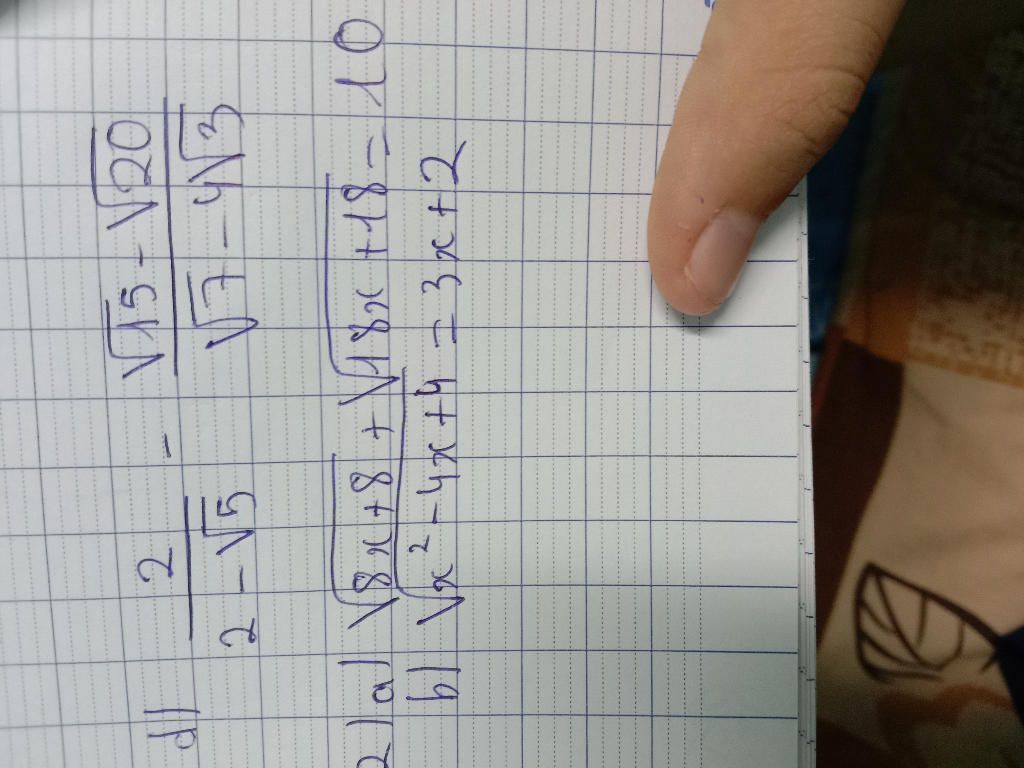 d) \frac{2}{2-\sqrt{5}} - \frac{\sqrt{15}-\sqrt{20}}{\sqrt{7}-4\sqrt{3}}
2) a) \sqrt{8x+8} + \sqrt{18x+18} = 10
b) \sqrt{x^2-4x+4} = 3x+2